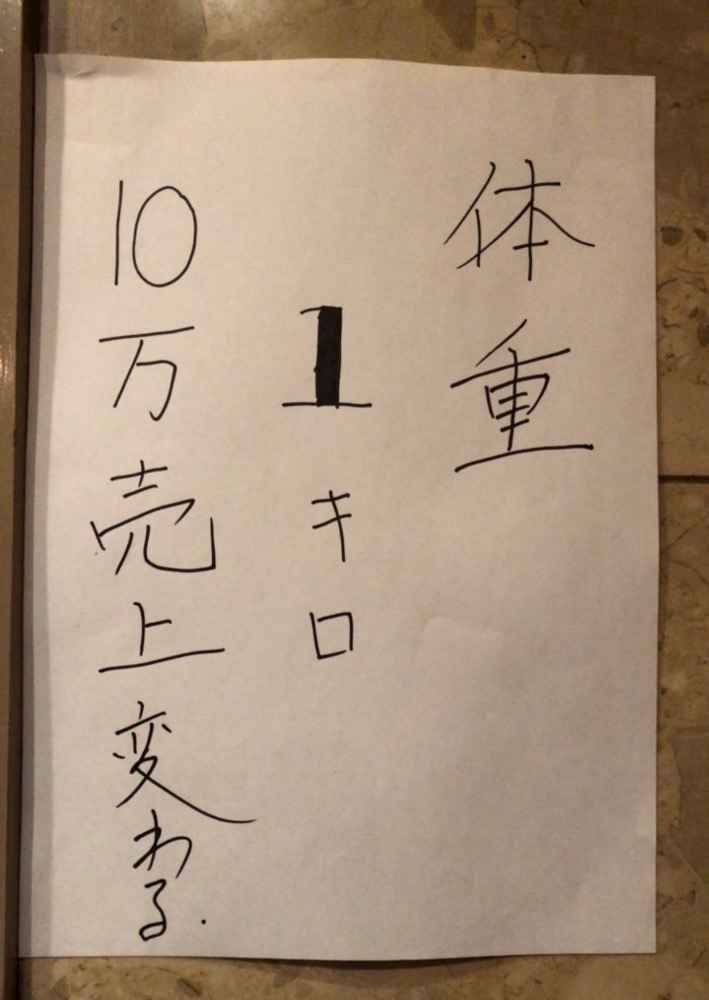 体重
1キロ
10万売上変わる.